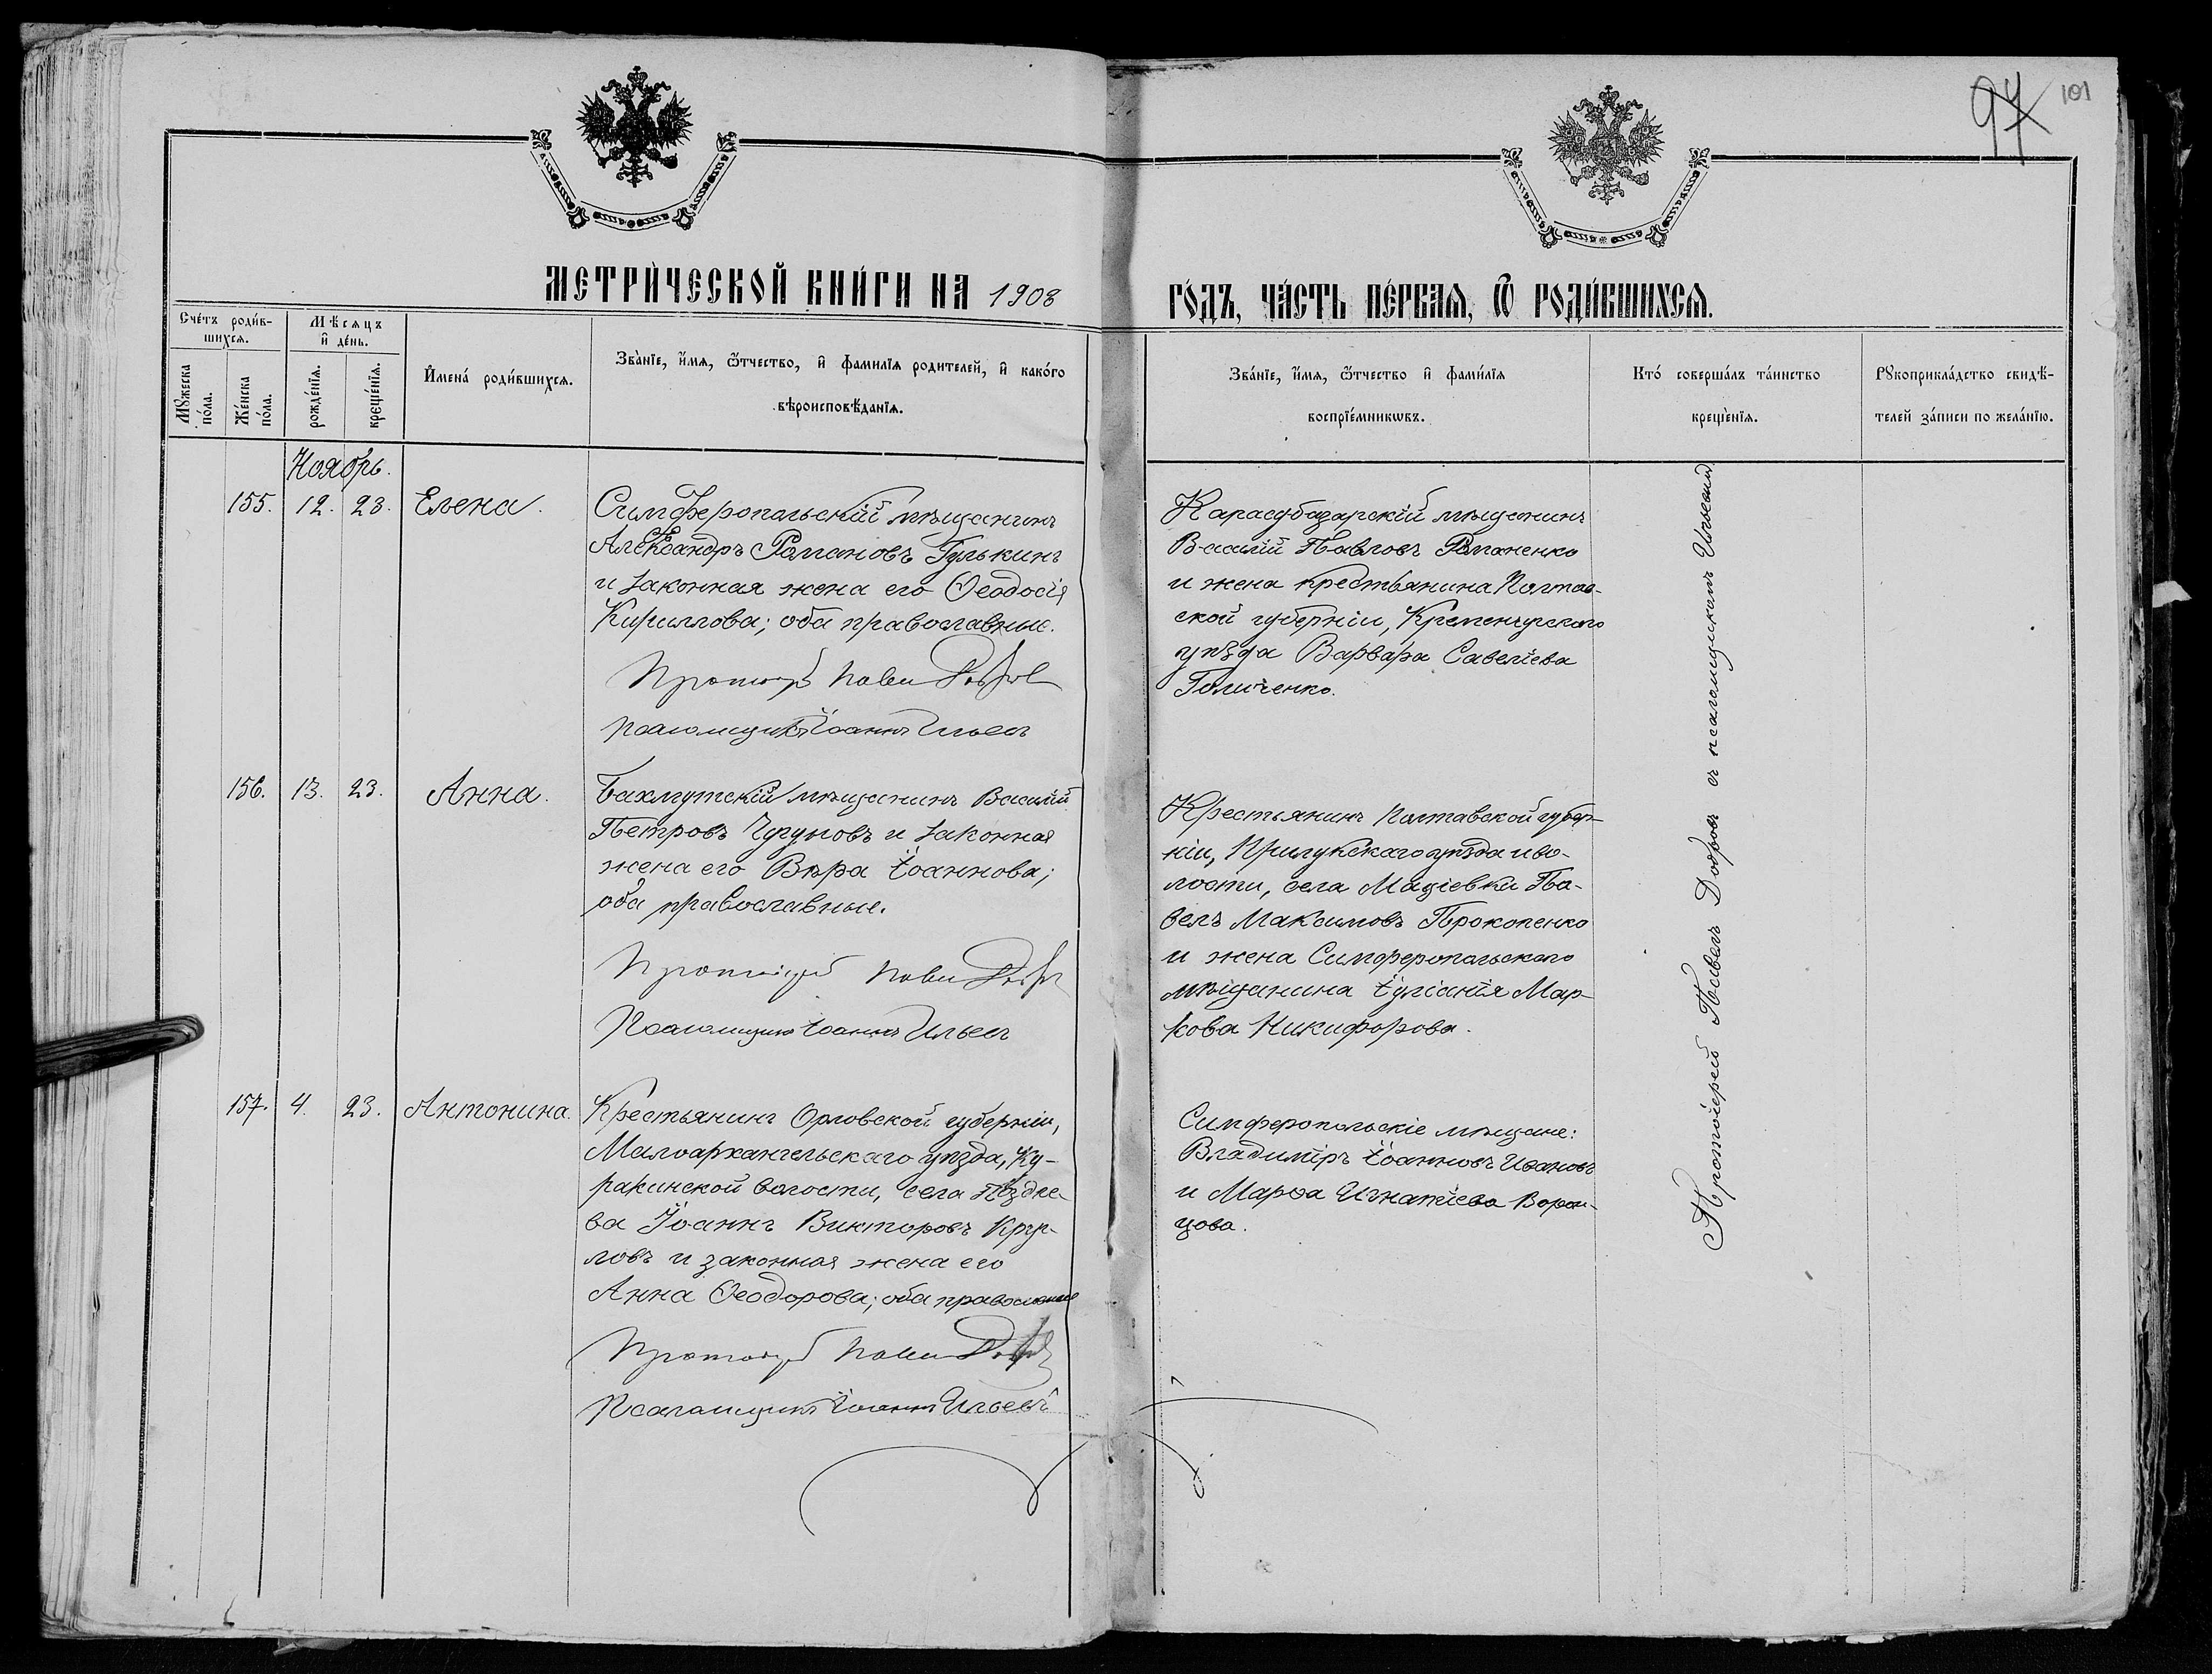 97 101
МЕТРИ́ЧЕСКОЙ КНИ́ГИ НА 1908
ГО́ДЪ, ЧА́СТЬ ПЕ́РВАЯ, Ѽ РОДИ́ВШИХСЯ.
Сче́тъ роди́в-
шихся.
Мѣ́сяцъ
и҆ де́нь.
Мꙋ́жеска
по́ла.
Же́нска
по́ла.
рожде́нїя.
креще́нїя.
И҆мена́ роди́вшихся.
Зва́нїе, и҆́мя, ѻ҆́тчество, и҆ фами́лїя родителей, и҆ како́го
вѣроисповѣ́данїя.
Зва́нїе, и҆́мя, ѻ҆́тчество и҆ фами́лїя
воспрїе́мникѡвъ.
Кто̀ соверша́лъ та́инство
креще́нїя.
Рꙋкоприкла́дство свидѣ́-
телей за́писи по жела́нїю.
Ноябрь.
155. 12. 23. Елена.
Симферопольскій мѣщанинъ
Александръ Романовъ Гулькинъ
и законная жена его Ѳеодосія
Кириллова; оба православные.
Протоіерей Павелъ Добровъ
Псаломщикъ Іоаннъ Ильевъ
Карасубазарскій мѣщанинъ
Василій Павловъ Романенко
и жена крестьянина Полтав-
ской губерніи, Кременчугскаго
уѣзда Варвара Савеліева
Галиченко.
156. 13. 23. Анна.
Бахмутскій мѣщанинъ Василій
Петровъ Чугуновъ и законная
жена его Вѣра Іоаннова;
оба православные.
Протоіерей Павелъ Добровъ
Псаломщикъ Іоаннъ Ильевъ
Крестьянинъ Полтавской губер-
ніи, Прилукскаго уѣзда и во-
лости, села Мацѣевки Па-
велъ Максимовъ Прокопенко
и жена Симферопольскаго
мѣщанина Іуліанія Мар-
кова Никифорова.
157. 4. 23. Антонина.
Крестьянинъ Орловской губерніи,
Малоархангельскаго уѣзда, Ку-
ракинской волости, села Позднее-
ва Іоаннъ Викторовъ Круг-
ловъ и законная жена его
Анна Ѳеодорова; оба православные
Протоіерей Павелъ Добровъ
Псаломщикъ Іоаннъ Ильевъ
Симферопольскіе мѣщане:
Владиміръ Іоанновъ Ивановъ
и Марѳа Игнатіева Ворон-
цова.
Протоіерей Павелъ Добровъ съ псаломщикомъ Ильевымъ